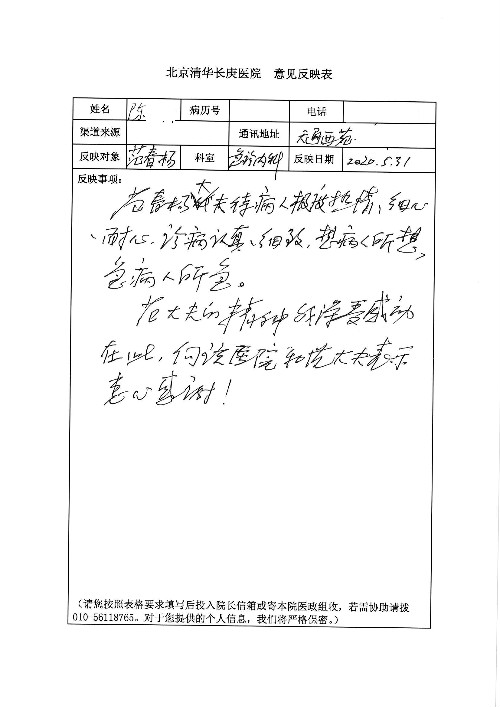 北京清华长庚医院 意见反映表
姓名 陈 病历号 电话
渠道来源 通讯地址 天通西苑
反映对象 范春杨 科室 急诊内科 反映日期 2020.5.31
反映事项：
范春杨大夫待病人极极热情、细心
、耐心、诊病认真、细致，想病人所想，
急病人所急。
范大夫的精神我深受感动
在此，向该医院和范大夫表示
衷心感谢！
（请您按照表格要求填写后投入院长信箱或寄本院医政组收，若需协助请拨
010-56118765。对于您提供的个人信息，我们将严格保密。）